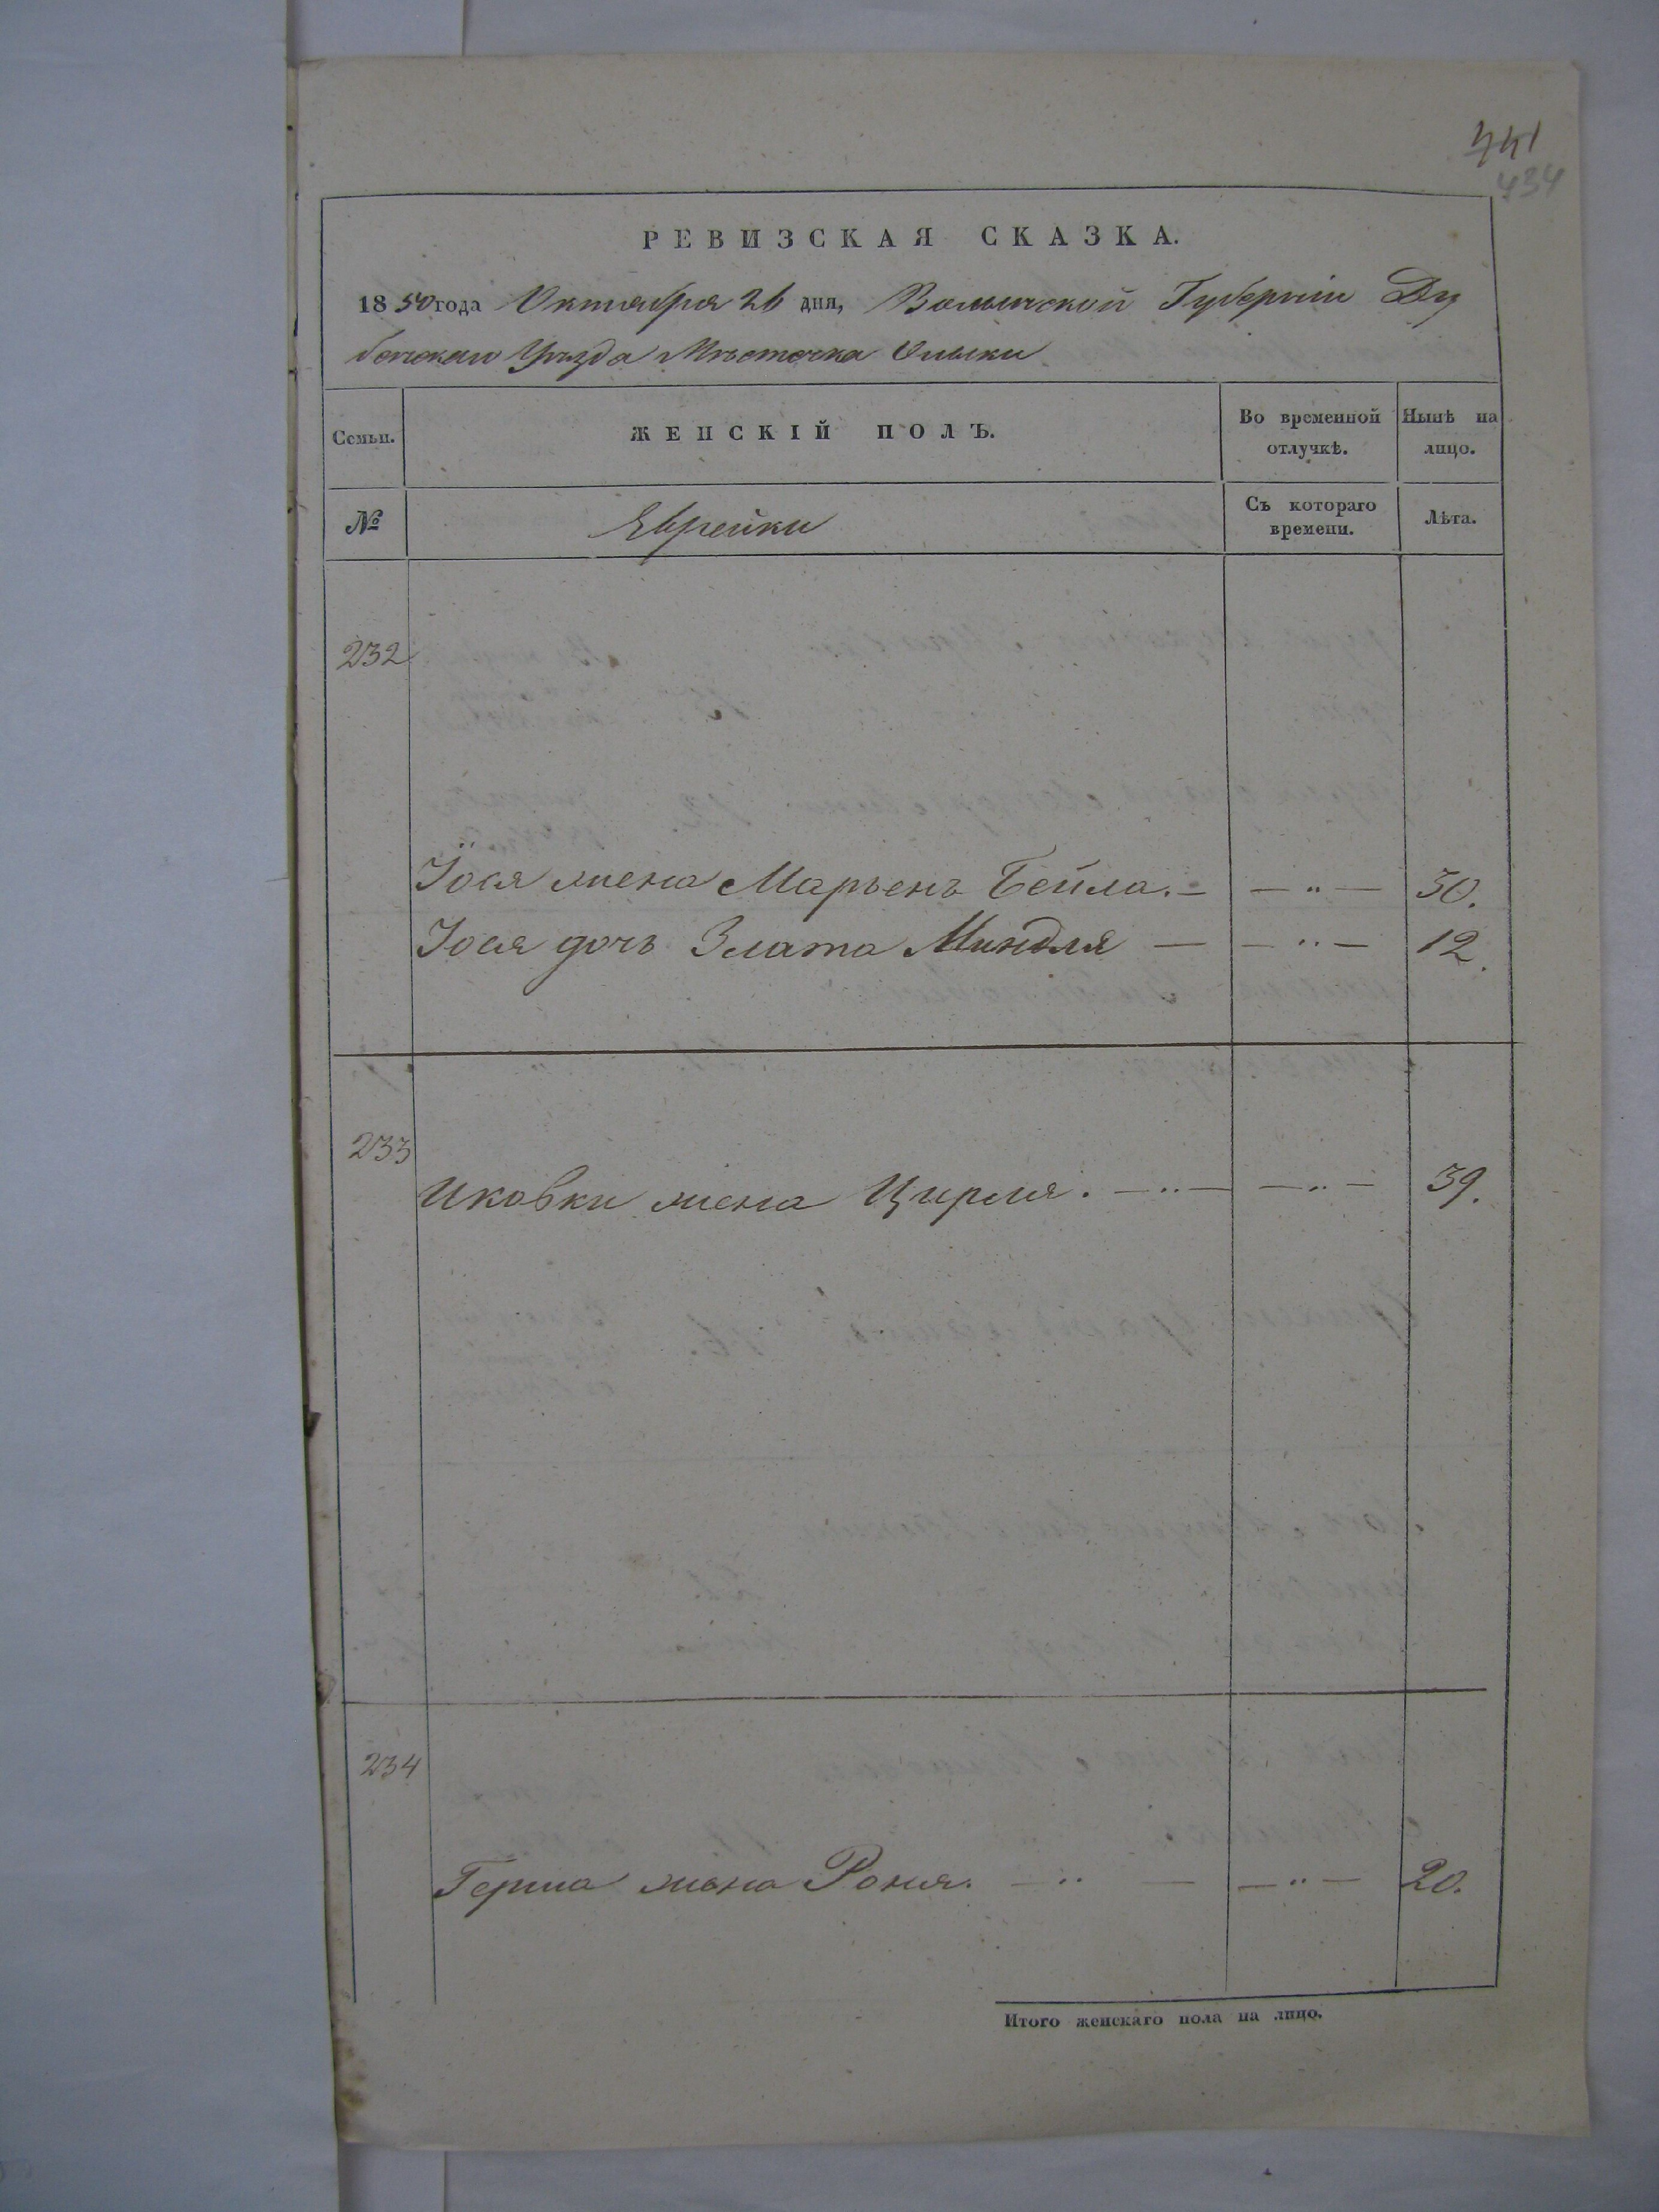 441
434
РЕВИЗСКАЯ СКАЗКА.
1850 года Октября 26 дня, Волынской Губерніи Ду
бенскаго Уѣзда Мѣстечка Олыки
Семьи. ЖЕНСКІЙ ПОЛЪ. Во временной отлучкѣ. Нынѣ на лицо.
№ Еврейки Съ котораго времени. Лѣта.
232
Іося жена Марьенъ Бейла. — — „ — 50.
Іося дочь Злата Миндля — — „ — 12.
233
Ицковки жена Цирля. — „ — — „ — 39.
234
Герша жена Роня. — „ — — „ — 20.
Итого женскаго пола на лицо.